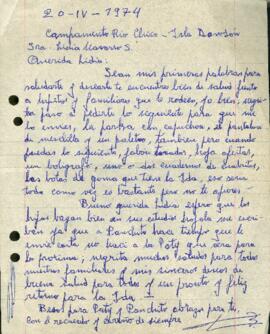 20-IV-1974
Campamento Río Chico - Isla Dawson
Sra. Lidia Navarro S.
Querida Lidia:
Sean mis primeras palabras para
saludarte y desearte te encuentres bien de salud junto
a tujitos y familiares que te rodean, yo bien, negrita
paso a pedirte lo siguiente para que me
lo envies, la parka con capuchon, el pantalon
de mezclilla y un paletó, tambien para cuando
puedas lo siguiente, jabon lavador, hoja afeitar,
un boligrafo, uno o dos cuaderno de cuadritos,
las botas de goma que tiene la Ida, eso seria
todo como ves es bastante pero no te apures.
Bueno querida Lidia espero que los
hijos hagan bien en sus estudios ojala me escri-
ban ya que a Panchito hace tiempo que le
envie carta no asi a la Paty que sera para
la proxima, negrita muchos saludos para todos
nuestros familiares y mis sinceros deseos de
buena salud para todos y un pronto y feliz
retorno para la Ida.
Besos para Paty y Panchito abrazos para ti,
con el recuerdo y cariño de siempre